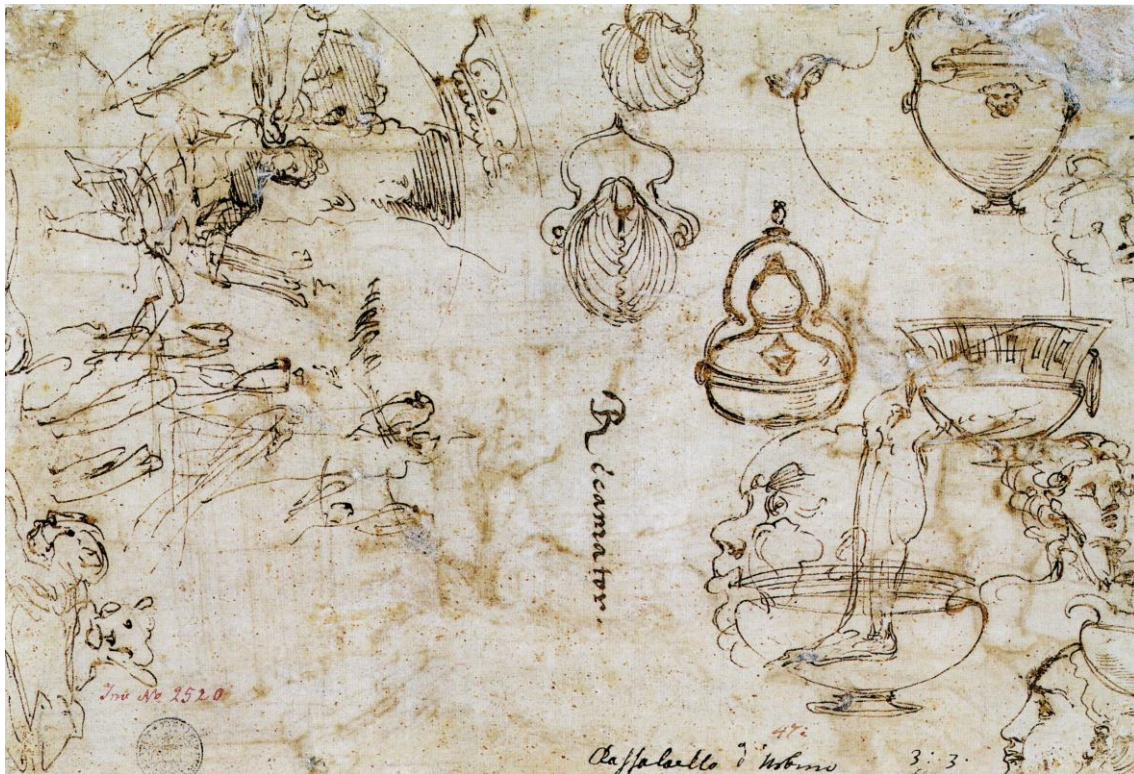 Ricamator.
Inv No 2520
47.
Raffaello d'Urbino 3: 3.